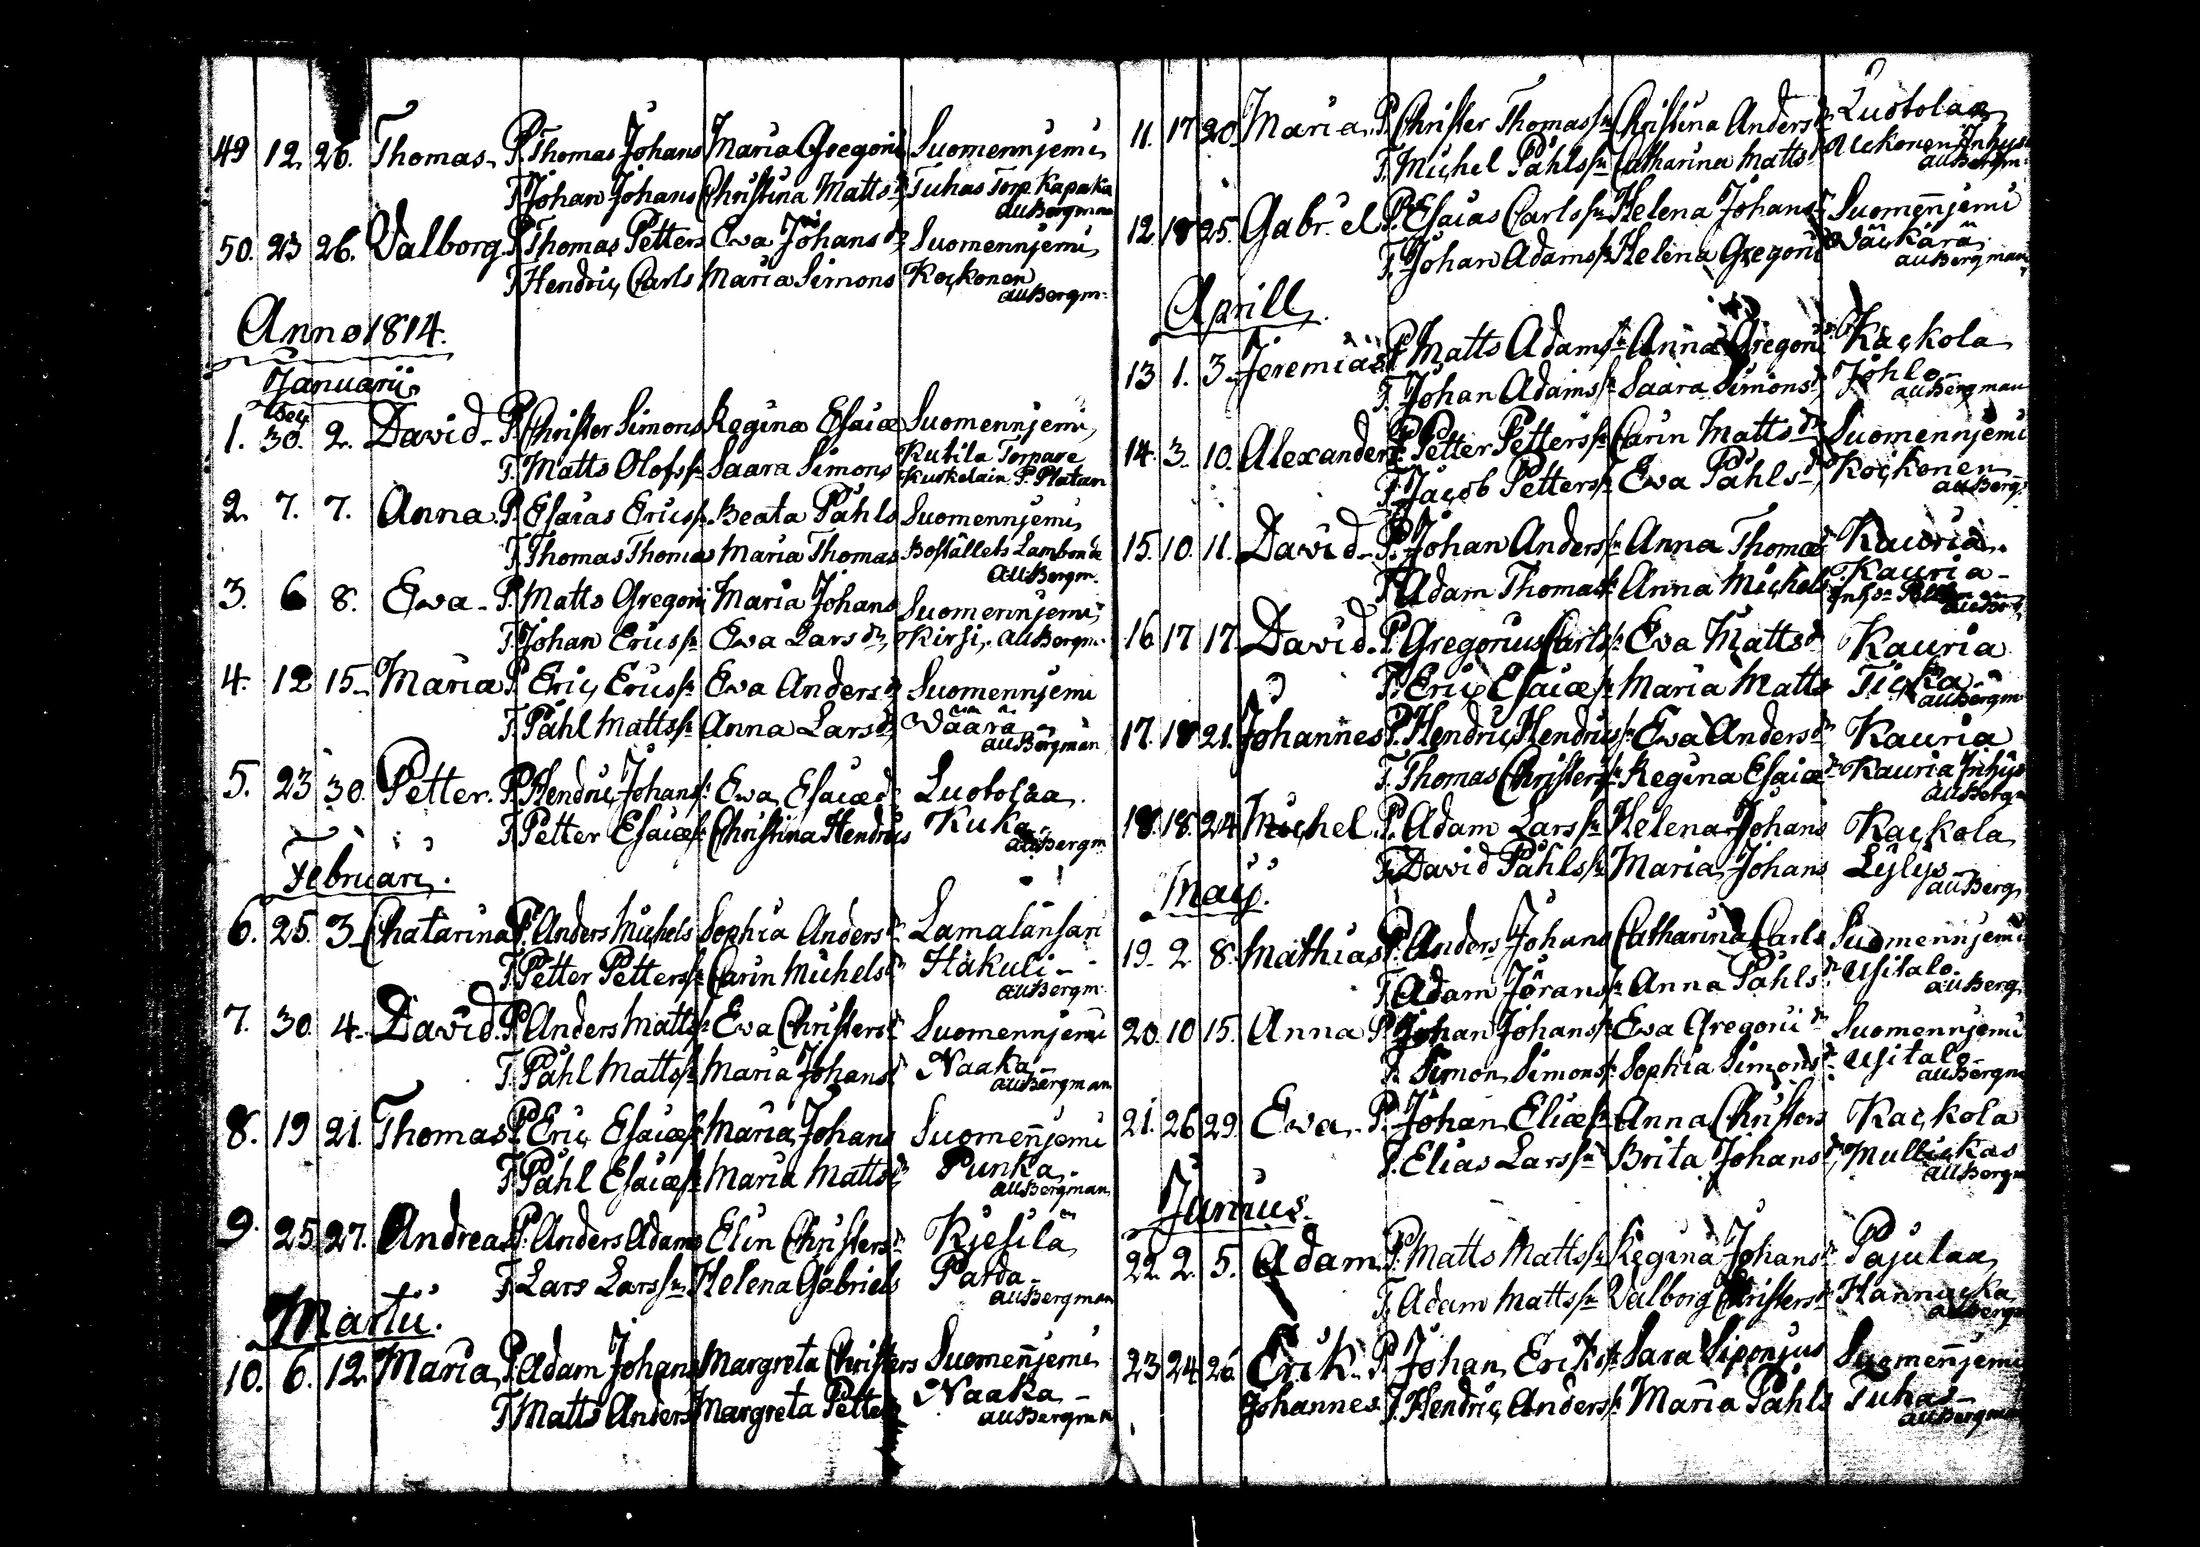 49 12. 26. Thomas. P. Thomas Johans Maria Gregorii Suomennjemi
T. Johan Johans Christina Mattsdr Tuhas Torp. Kapaka
auBergman
50. 23 26. Valborg. P. Thomas Petters Eva Johans dr Suomennjemi
T. Hendric Carls Maria Simons Kockonen
auBergm:
Anno 1814.
Januarii
Dec
1. 30. 2. David. P. Christer Simons Regina Esaiæ Suomennjemi
T. Matts Olofss: Saara Simons Rutila Torpare
Kuskelain P. Platan
2. 7. 7. Anna. P. Esaias Ericss: Beata Påhls Suomennjemi
T. Thomas Thomas Maria Thomas Boställets Lambonde
auBergm.
3. 6 8. Ewa. P. Matts Gregorii Maria Johans Suomennjemi
T. Johan Ericss: Ewa Lars dr Kirsi. auBergm.
4. 12 15. Maria P. Eric Ericss: Eva Anders dr Suomennjemi
T. Påhl Mattss: Anna Lars dr Väärä
auBergman
5. 23 30. Petter. P. Hendric Johanss: Ewa Esaiæ dr Luotolaa.
T. Petter Esaiæss: Christina Hendrics Kuka
auBergm
Februari.
6. 25. 3. Chatarina P. Anders Michels Sophia Anders dr Lamalansari
T. Petter Petterss: Carin Michels dr Hakuli
auBergm.
7. 30 4. David. P. Anders Mattss: Eva Christers dr Suomennjemi
T. Påhl Mattss: Maria Johans dr Naaka
auBergman
8. 19 21. Thomas P. Eric Esaiæss: Maria Johans Suomen̄jemi
T. Påhl Esaiæss: Maria Matts dr Punka.
auBergman
9. 25 27. Andreas P. Anders Adams Elin Christers dr Kjesilä
T. Lars Larss: Helena Gabriels Parda
auBergman
Martii.
10. 6. 12. Maria, P. Adam Johans Margreta Christers Suomen̄jemi
T. Matts Anders Margreta Petters Naaka
auBergman
11. 17 20. Maria. P. Christer Thomass: Christina Anders dr Luotolaa
T. Michel Påhlss: Catharina Matts Inhys
auBergm.
12 18 25. Gabriel P. Esaias Carlss: Helena Johans dr Suomen̄jemi
T. Johan Adamss: Helena Gregorii Väckärä
auBergman
Aprill.
13 1. 3. Jeremias P. Matts Adamss: Anna Gregorii Kackola
T. Johan Adamss: Saara Simons dr Johlo
auBergman
14. 3. 10. Alexander P. Petter Petterss: Carin Matts dr Suomennjemi
T. Jacob Petterss: Ewa Påhls dr Kockonen
auBerg.
15. 10. 11. David. P. Johan Anderss: Anna Thomæ Kauria.
T. Adam Thomass: Anna Michels Kauria
Inhs:
16 17 17. David. P. Gregorius Carlss: Eva Matts dr Kauria
T. Eric Esaiæss: Maria Matts Ticka
auBergm
17. 18 21. Johannes P. Hendric Hendricss: Eva Anders dr Kauria
T. Thomas Christerss: Regina Esaiæ dr Kauria Inhys
auBergm
18. 18. 24. Michel. P. Adam Larss: Helena Johans Kackola
T. David Påhlss: Maria Johans Lylys
auBerg
Maij.
19. 2 8. Mathias P. Anders Johans Catharina Carls Suomennjemi
T. Adam Jöranss: Anna Påhls dr Usitalo.
auBerg
20. 10 15. Anna P. Johan Johanss: Eva Gregorii dr Suomennjemi
T. Simon Simonss: Sophia Simons dr Usitalo
auBergm
21. 26 29. Ewa. P. Johan Eliæss: Anna Christers Kackola
T. Elias Larss: Brita Johans dr Mullickas
auBergm
Junius.
22. 2. 5. Adam. P. Matts Mattss: Regina Johans dr Pajulaa
T. Adam Mattss: Valborg Christers dr Hannucka
auBergm
23 24 26. Erik P. Johan Erikss: Sara Siponjus Suomen̄jemi
Johannes T. Hendric Anderss: Maria Påhls Tuhas
auBergman